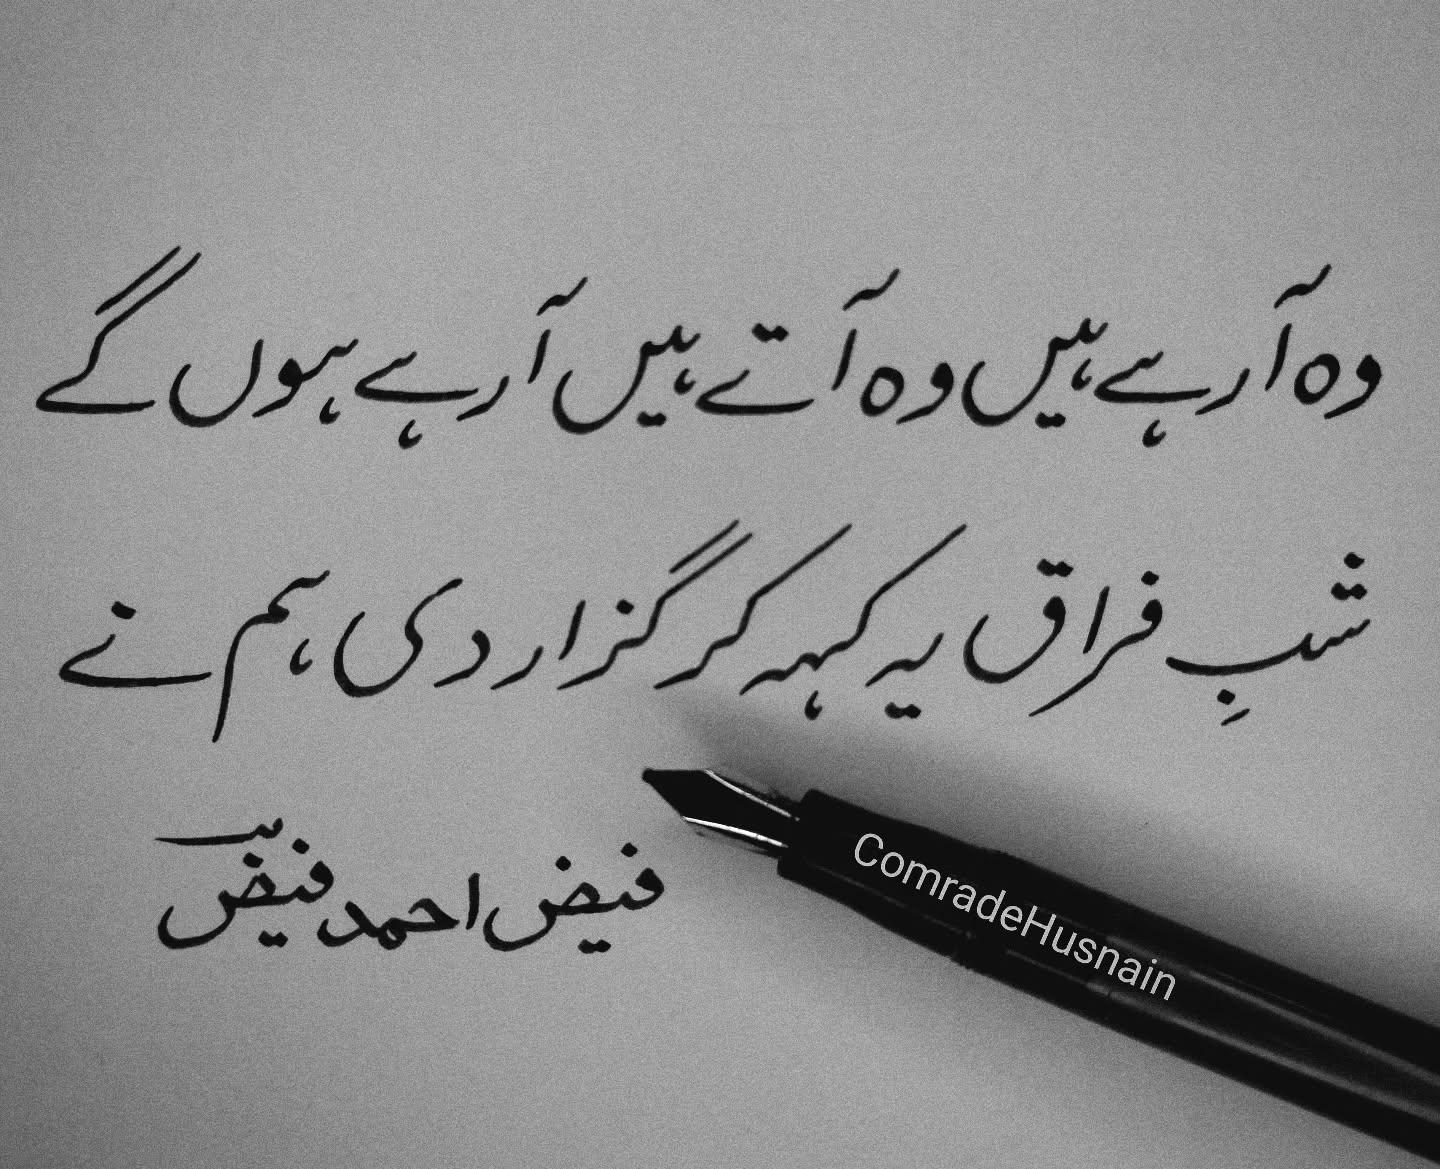 وہ آ رہے ہیں وہ آتے ہیں آ رہے ہوں گے
شبِ فراق یہ کہہ کر گزار دی ہم نے
فیض احمد فیضؔ
ComradeHusnain